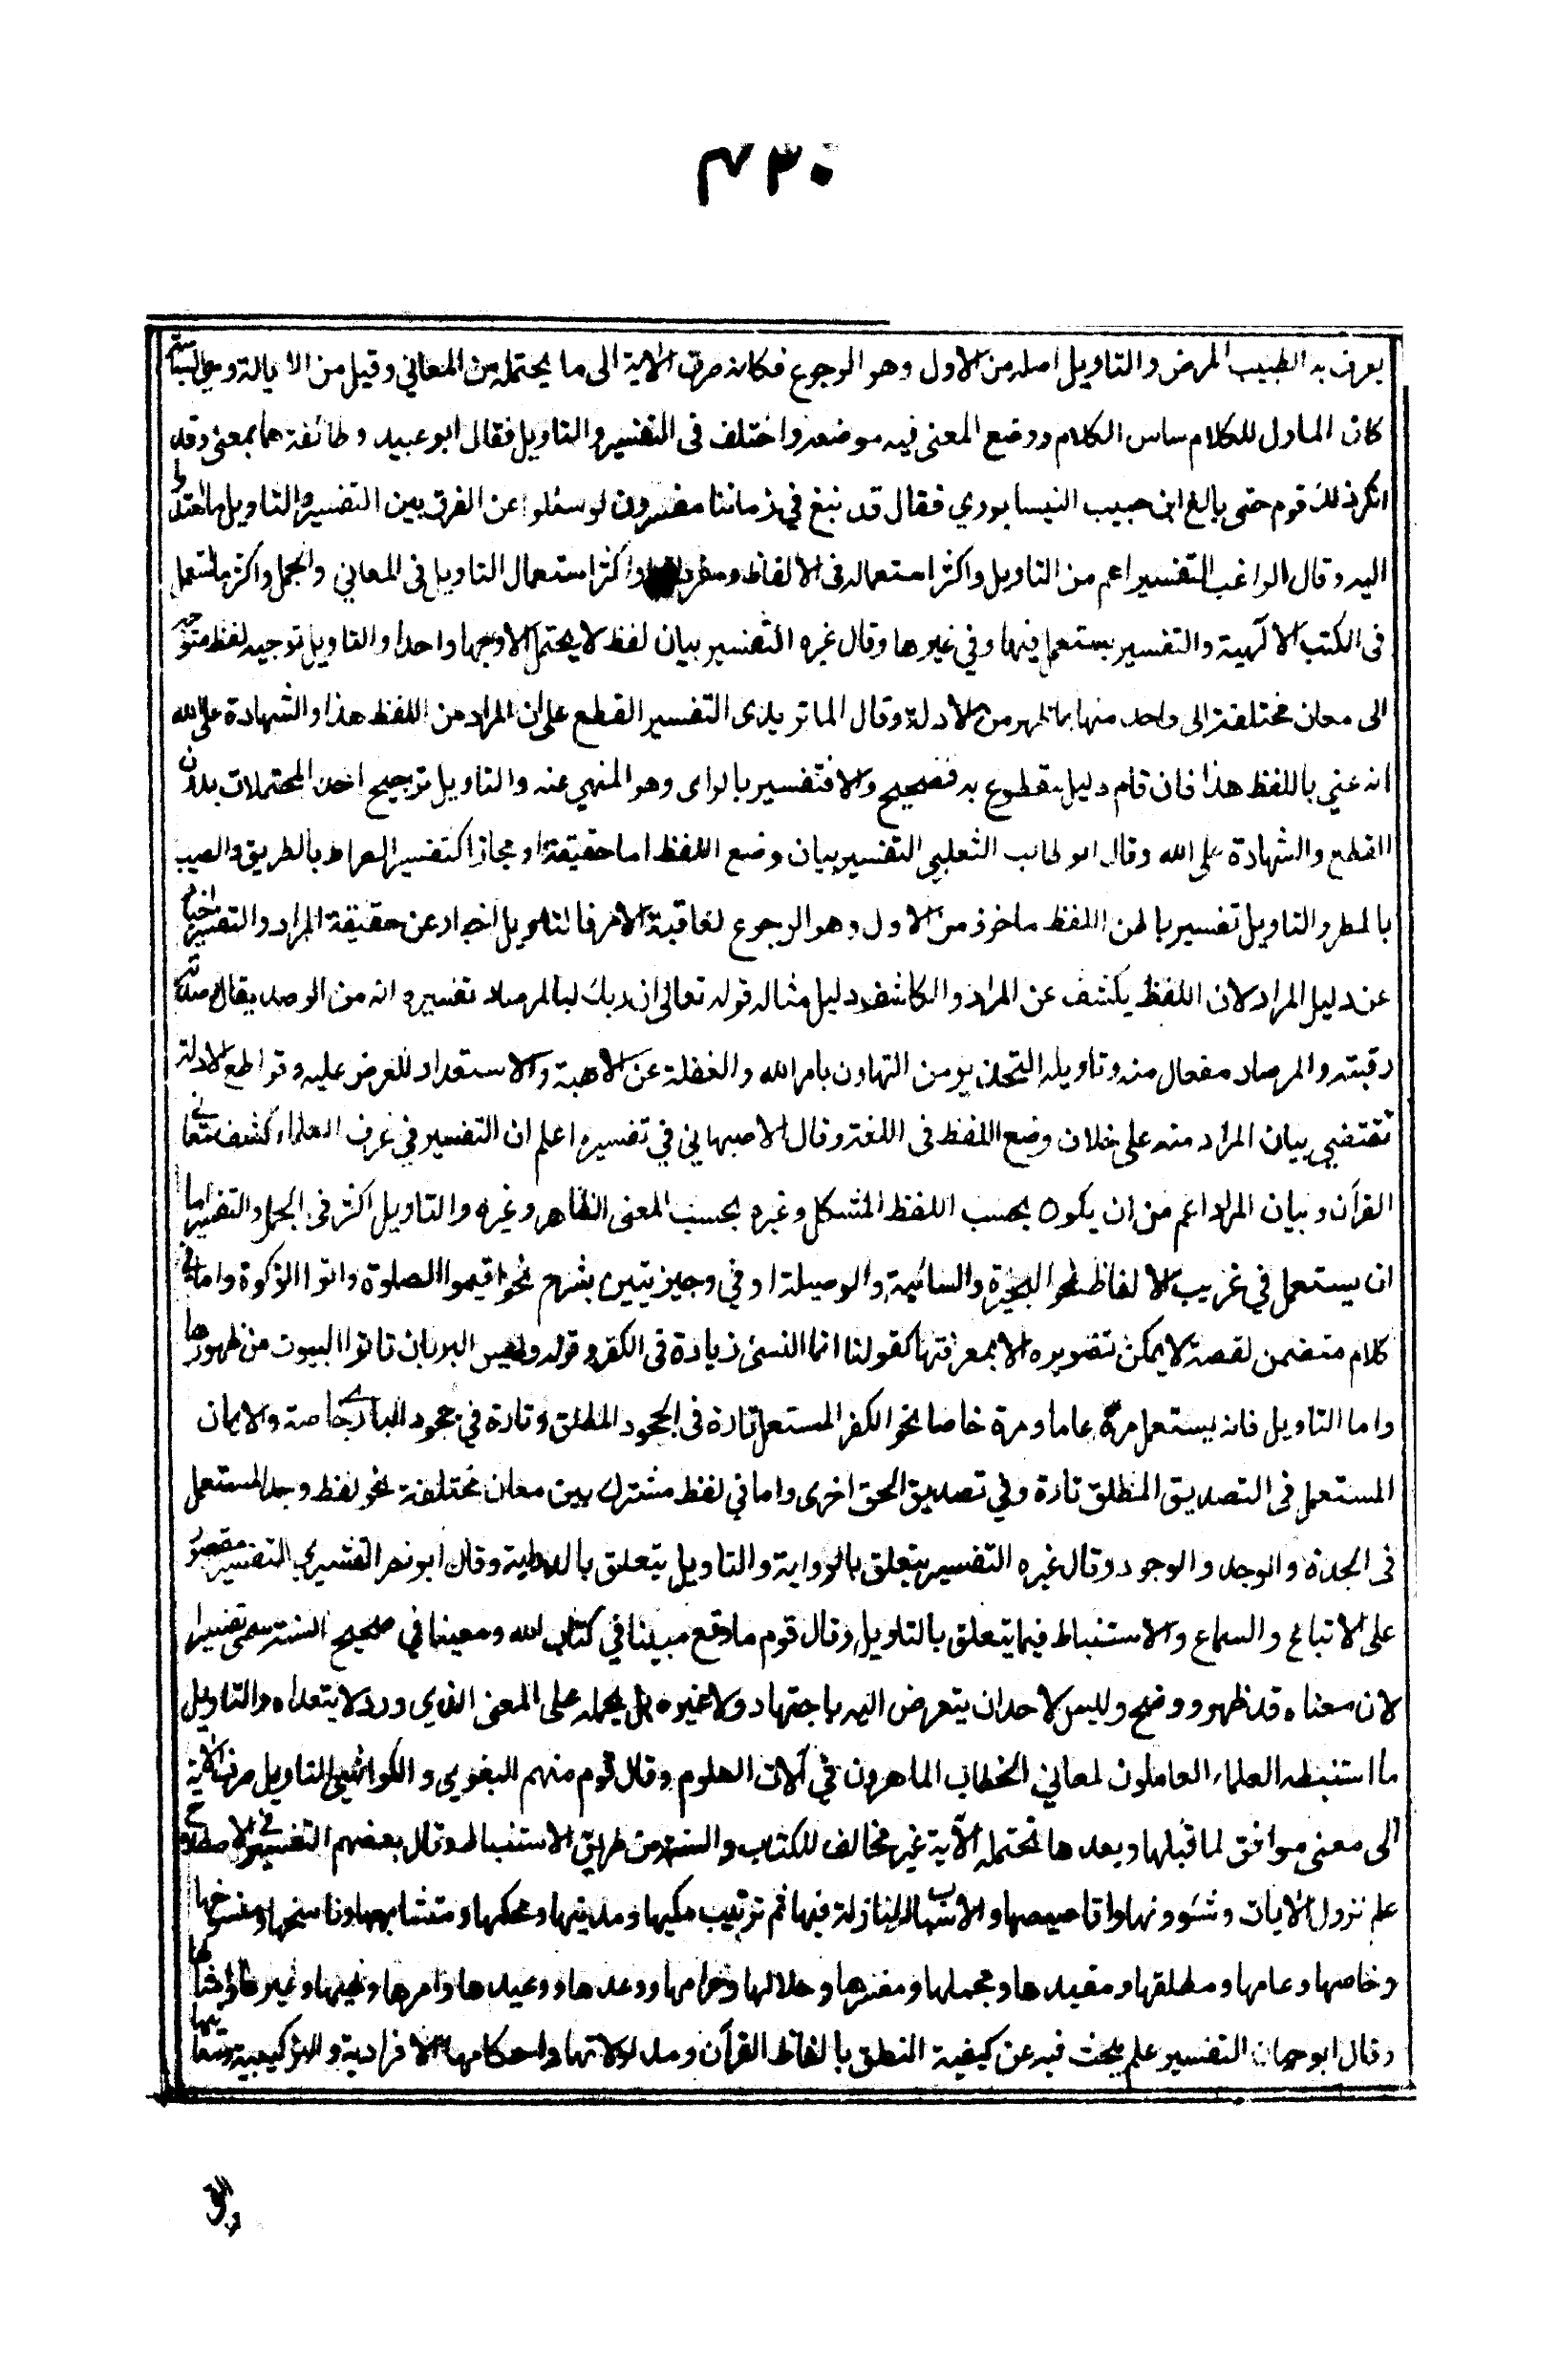 ٤٣٠
يعرف به الطبيب المرض والتاويل اصله من الاول وهو الرجوع فكانه صرف الاية الى ما يحتمله من المعاني وقيل من الايالة وهي السياسة
كان الماول للكلام ساس الكلام ووضع المعنى فيه موضعه واختلف فى التفسير والتاويل فقال ابو عبيد وطائفة هما بمعنى وقد
انكر ذلك قوم حتى بالغ ابن حبيب النيسابوري فقال قد نبغ في زماننا مفسرون لو سئلوا عن الفرق بين التفسير والتاويل ما اهتدوا
اليه وقال الراغب التفسير اعم من التاويل واكثر استعماله فى الالفاظ ومفرداتها واكثر استعمال التاويل فى المعاني والجمل واكثر ما يستعمل
فى الكتب الالهية والتفسير يستعمل فيها وفي غيرها وقال غيره التفسير بيان لفظ لا يحتمل الا وجها واحدا والتاويل توجيه لفظ متوجه
الى معان مختلفة الى واحد منها بما ظهر من الادلة وقال الماتريدى التفسير القطع على ان المراد من اللفظ هذا والشهادة على الله
انه عني باللفظ هذا فان قام دليل مقطوع به فصحيح والا فتفسير بالراى وهو المنهي عنه والتاويل ترجيح احد المحتملات بدون
القطع والشهادة على الله وقال ابو طالب الثعلبي التفسير بيان وضع اللفظ اما حقيقة او مجازا كتفسير الصراط بالطريق والصيب
بالمطر والتاويل تفسير باطن اللفظ ماخوذ من الاول وهو الرجوع لعاقبة الامر فالتاويل اخبار عن حقيقة المراد والتفسير اخبار
عن دليل المراد لان اللفظ يكشف عن المراد والكاشف دليل مثاله قوله تعالى ان ربك لبالمرصاد تفسيره انه من الرصد يقال رصدته
رقبته والمرصاد مفعال منه وتاويله التحذير من التهاون بامر الله والغفلة عن الاهبة والاستعداد للعرض عليه وقواطع الادلة
تقتضي بيان المراد منه على خلاف وضع اللفظ فى اللغة وقال الاصبهاني في تفسيره اعلم ان التفسير في عرف العلماء كشف معاني
القرآن وبيان المراد اعم من ان يكون بحسب اللفظ المشكل وغيره بحسب المعنى الظاهر وغيره والتاويل اكثر فى الجمل والتفسير اما
ان يستعمل في غريب الالفاظ نحو البحيرة والسائبة والوصيلة او في وجيز يتبين بشرح نحو اقيموا الصلوة واتوا الزكوة واما في
كلام متضمن لقصة لا يمكن تصويره الا بمعرفتها كقولنا انما النسئ زيادة فى الكفر وقوله وليس البر بان تاتوا البيوت من ظهورها
واما التاويل فانه يستعمل مرة عاما ومرة خاصا نحو الكفر المستعمل تارة فى الجحود المطلق وتارة في جحود الباري خاصة والايمان
المستعمل فى التصديق المطلق تارة وفي تصديق الحق اخرى واما في لفظ مشترك بين معان مختلفة نحو لفظ وجد المستعمل
فى الجدة والوجد والوجود وقال غيره التفسير يتعلق بالرواية والتاويل يتعلق بالدراية وقال ابو نصر القشيري التفسير مقصور
على الاتباع والسماع والاستنباط فيما يتعلق بالتاويل وقال قوم ما وقع مبينا في كتاب الله ومعينا في صحيح السنة سمى تفسيرا
لان معناه قد ظهر ووضح وليس لاحد ان يتعرض اليه باجتهاد ولا غيره بل يحمله على المعنى الذي ورد لا يتعداه والتاويل
ما استنبطه العلماء العاملون لمعاني الخطاب الماهرون في آلات العلوم وقال قوم منهم البغوي والكواشي التاويل صرف الاية
الى معنى موافق لما قبلها وبعدها تحتمله الآية غير مخالف للكتاب والسنة من طريق الاستنباط وقال بعضهم التفسير في الاصطلاح
علم نزول الايات وشئوونها واقاصيصها والاسباب النازلة فيها ثم ترتيب مكيها ومدينها ومحكمها ومتشابهها وناسخها ومنسوخها
وخاصها وعامها ومطلقها ومقيدها ومجملها ومفسرها وحلالها وحرامها ووعدها ووعيدها وامرها ونهيها وغيرها وامثالها
وقال ابو حيان التفسير علم يبحث فيه عن كيفية النطق بالفاظ القرآن ومدلولاتها واحكامها الافرادية والتركيبية ومعانيها